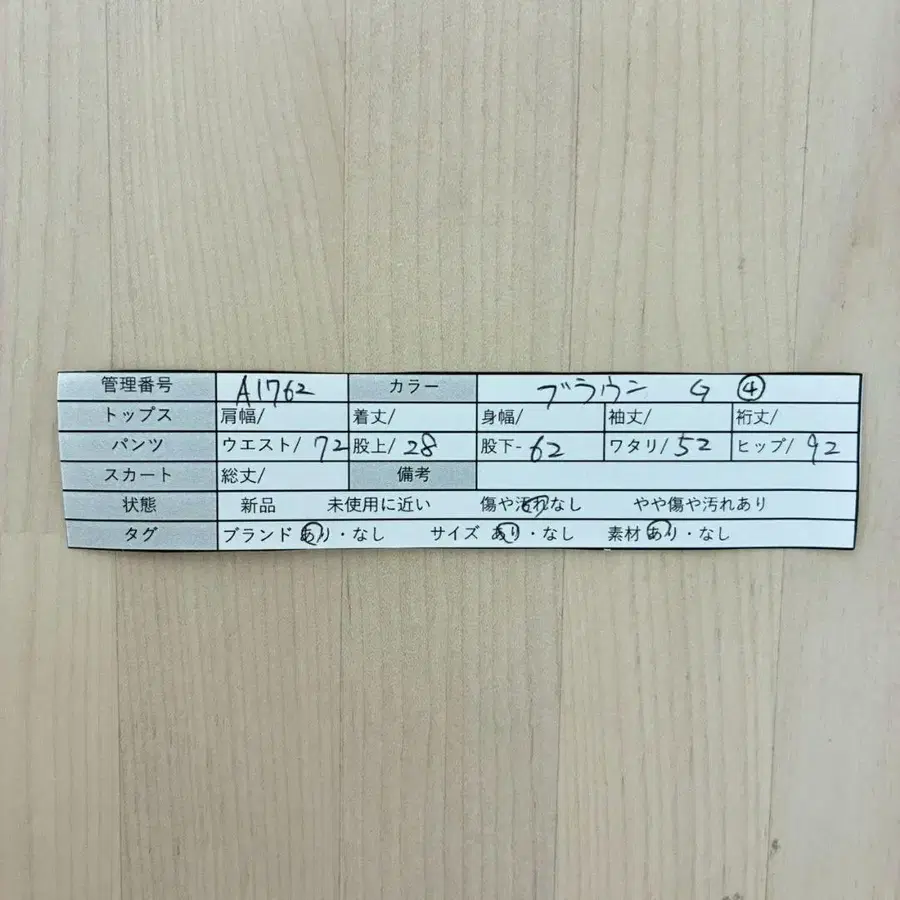 管理番号 A1762 カラー ブラウン G ④
トップス 肩幅/ 着丈/ 身幅/ 袖丈/ 裄丈/
パンツ ウエスト/72 股上/28 股下-62 ワタリ/52 ヒップ/92
スカート 総丈/ 備考
状態 新品 未使用に近い 傷や汚れなし やや傷や汚れあり
タグ ブランド あり・なし サイズ あり・なし 素材 あり・なし